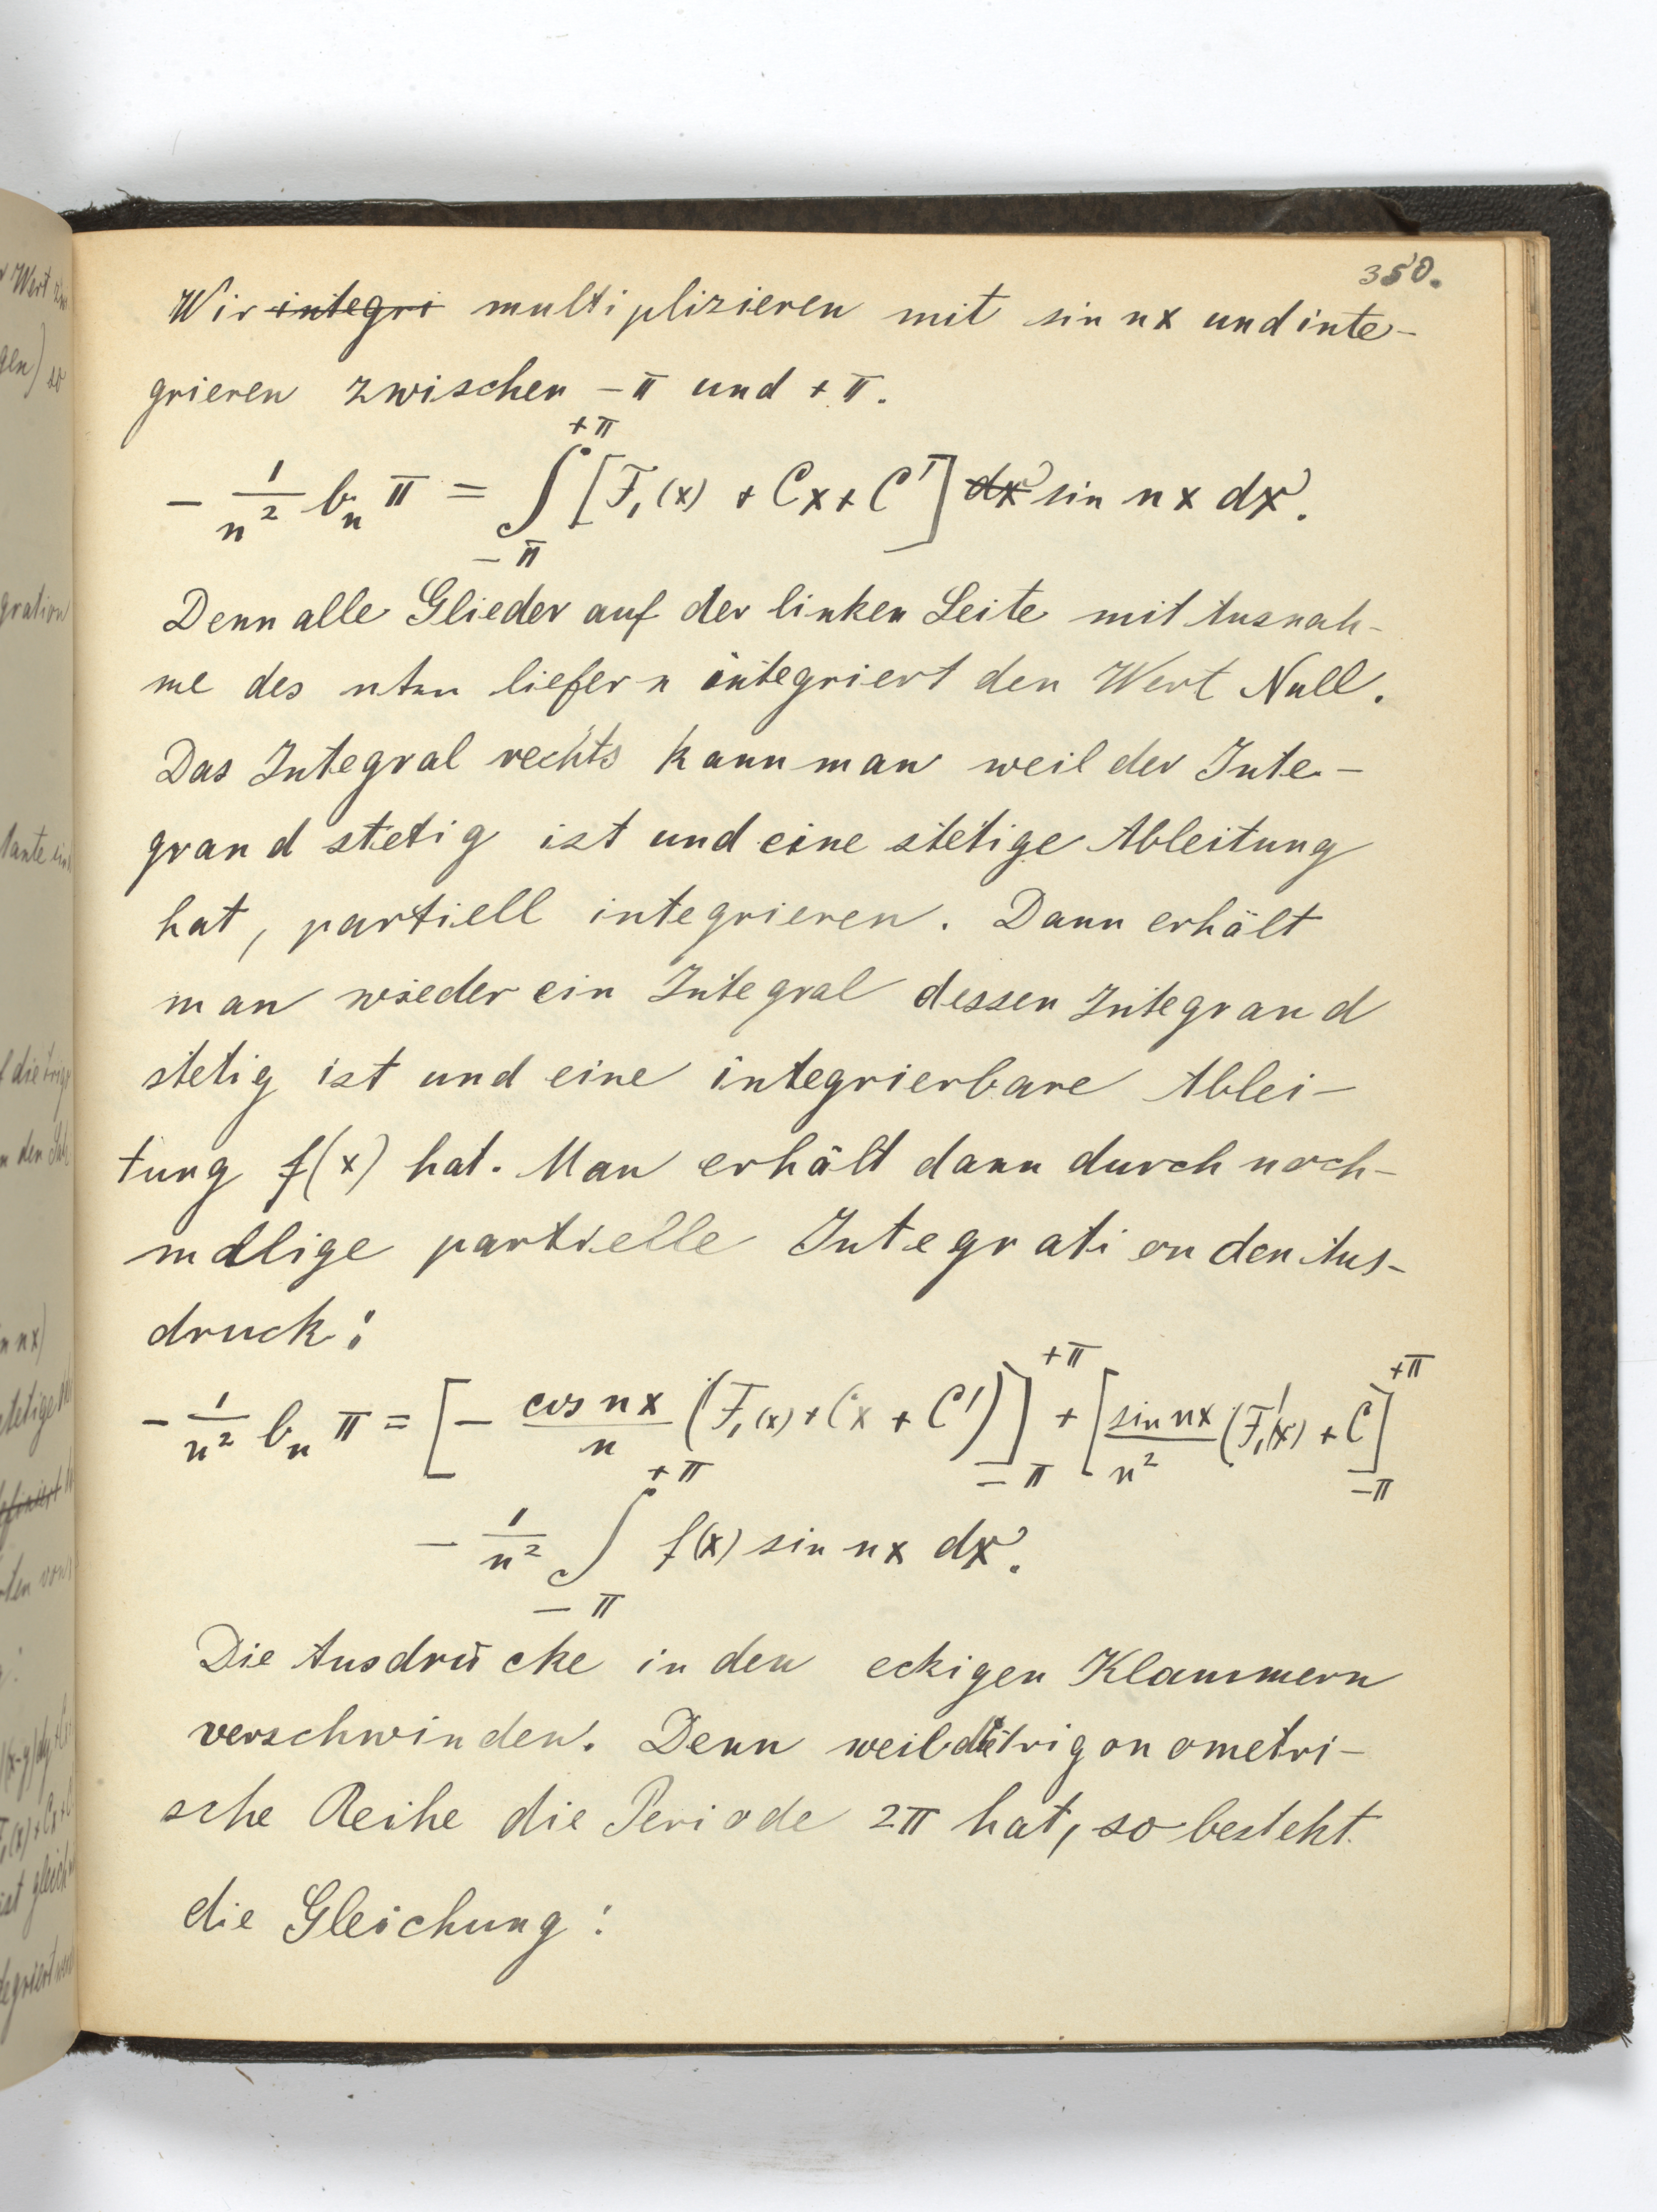 350.
Wir ~~integri~~ multiplizieren mit sin nx und inte-
grieren zwischen -π und +π.
$-\frac{1}{n^2} b_n π = \int_{-π}^{+π} [F_1(x) + Cx + C'] ~~dx~~ \sin nx\, dx.$
Denn alle Glieder auf der linken Seite mit Ausnah-
me des nten liefern integriert den Wert Null.
Das Integral rechts kann man weil der Inte-
grand stetig ist und eine stetige Ableitung
hat, partiell integrieren. Dann erhält
man wieder ein Integral dessen Integrand
stetig ist und eine integrierbare Ablei-
tung f(x) hat. Man erhält dann durch noch-
malige partielle Integration den Aus-
druck:
$-\frac{1}{n^2} b_n π = [-\frac{\cos nx}{n} (F_1(x) + Cx + C')]_{-π}^{+π} + [\frac{\sin nx}{n^2} (F_1'(x) + C]_{-π}^{+π}$
$-\frac{1}{n^2} \int_{-π}^{+π} f(x) \sin nx\, dx.$
Die Ausdrücke in den eckigen Klammern
verschwinden. Denn weil die trigonometri-
sche Reihe die Periode 2π hat, so besteht
die Gleichung: